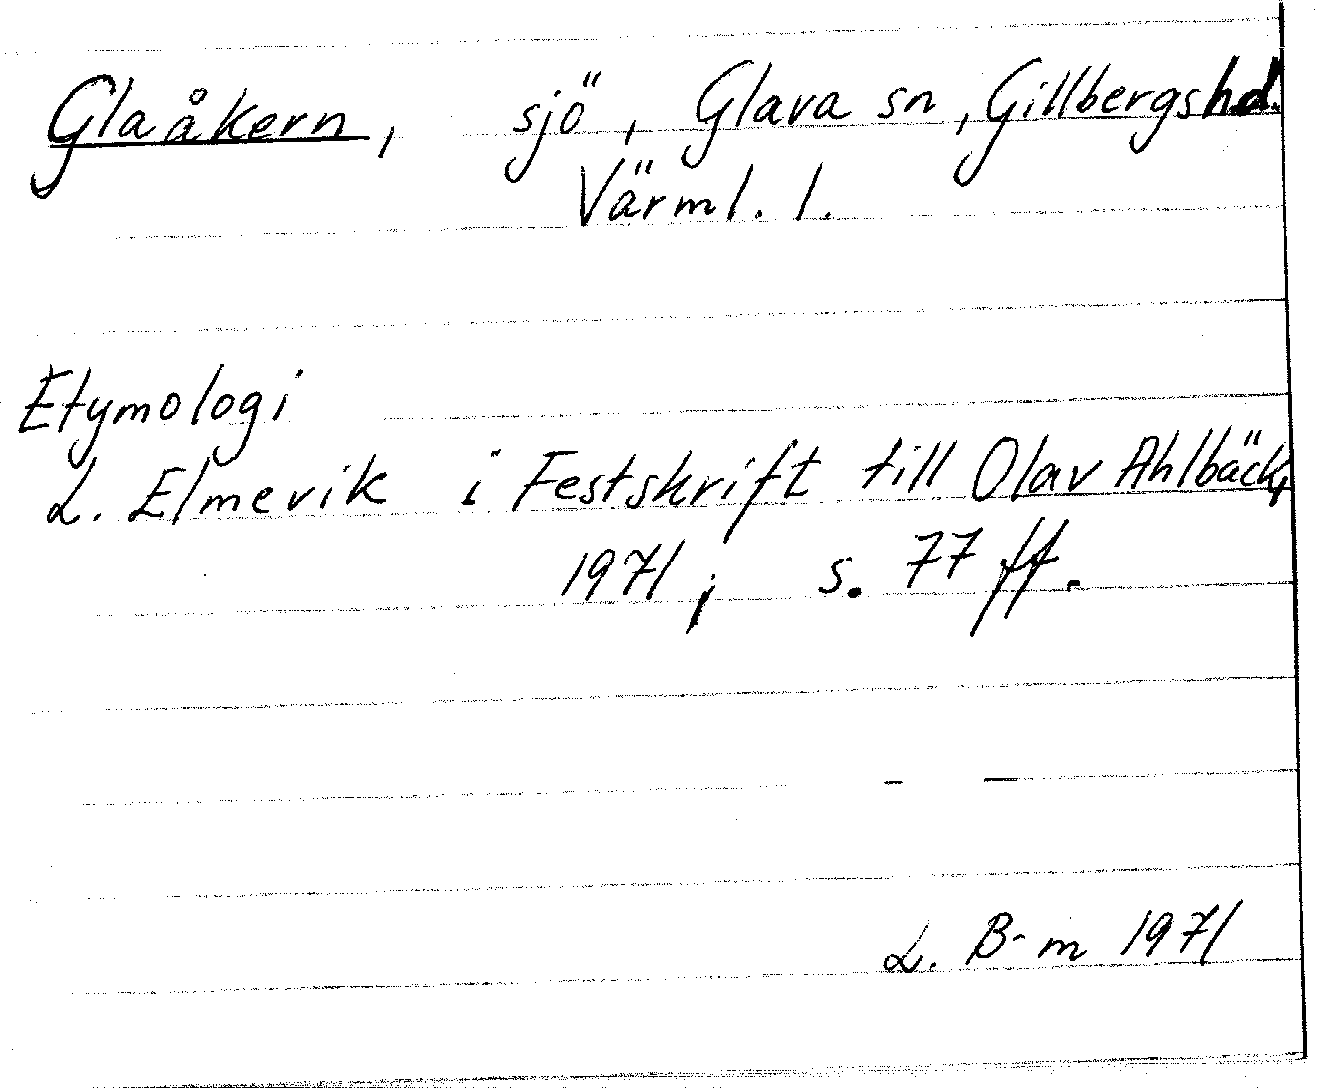 Glaåkern, sjö, Glava sn, Gillbergs hd.
Värml. l.
Etymologi
L. Elmevik i Festskrift till Olav Ahlbäck,
1971, s. 77 ff.
L. B-m 1971